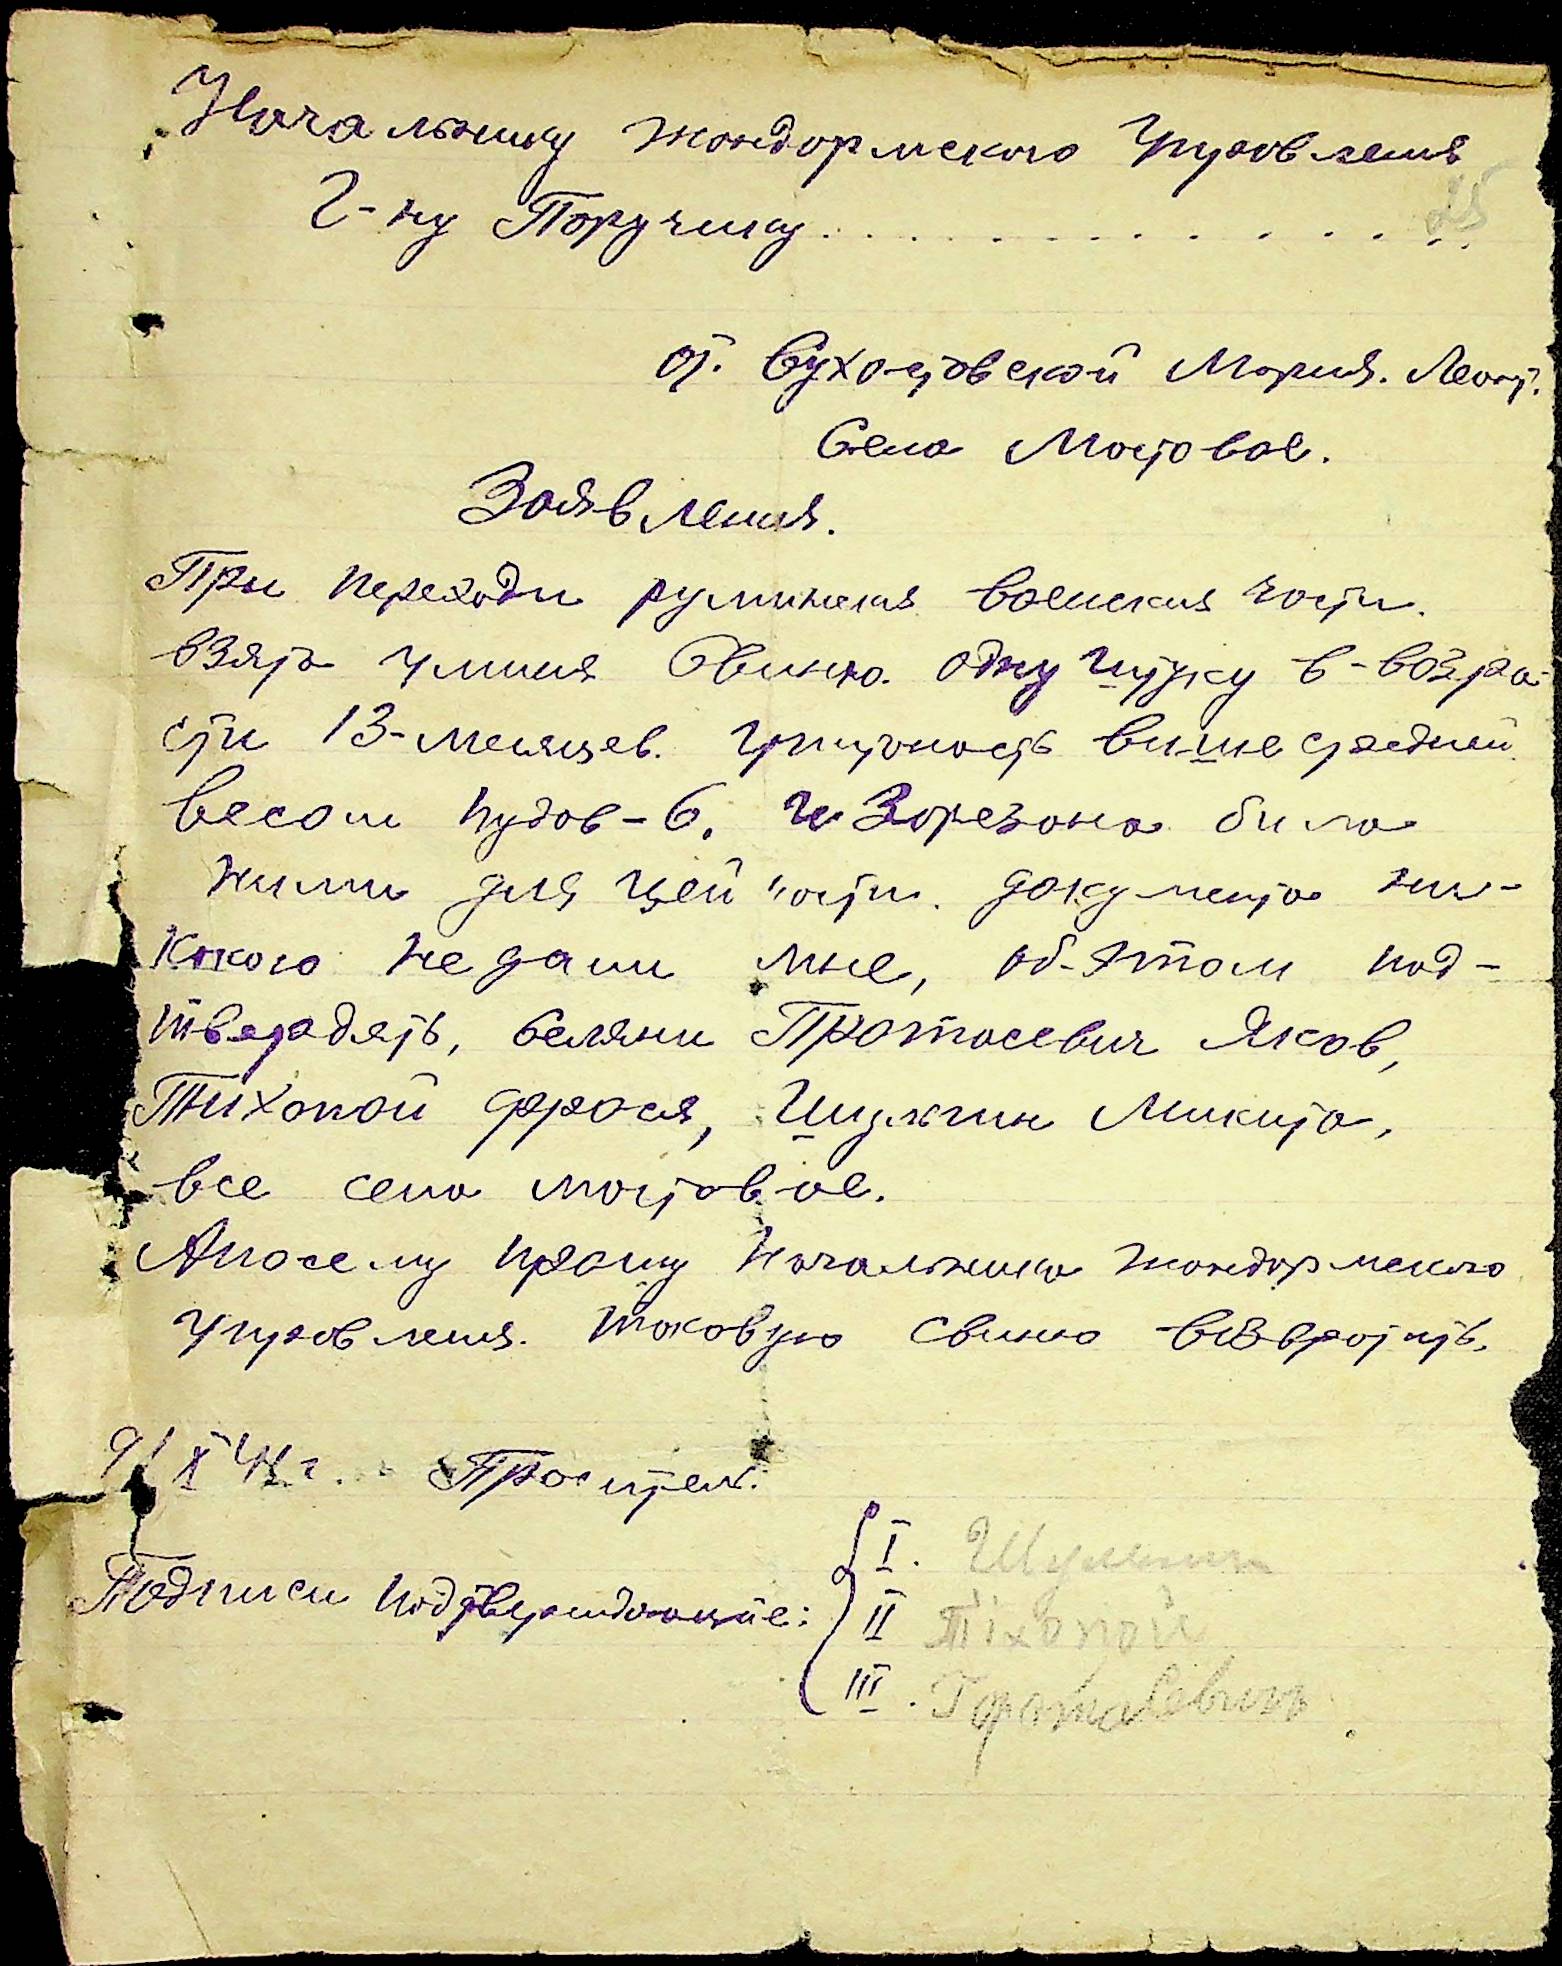 Начальнику жандармского Управления
Г-ну Поручику . . . . . . . . . . . .
25
от. Сухотовской Мария. Леонт.
Село Мостовое.
Заявления.
При переходи руминская воинская части.
взята умпня Свиню. одну штуку в-возра-
сти 13-месяцев. упитоность више средней
весом пудов-6. и Зарезана била
ними для цей части. документа ни-
какого не дали мне, об-этом под-
твердять, селяни Протосевич Яков,
Тихопой Фрося, Шулькин Микита,
все село мостовое.
Апосему прошу Начальника жандармского
управления. таковую свиню возвратить.
9/X 41 г. Проситель.
Подписи подтверждающие:
I. Шулькин
II Тіхопой
III. Протасевичь